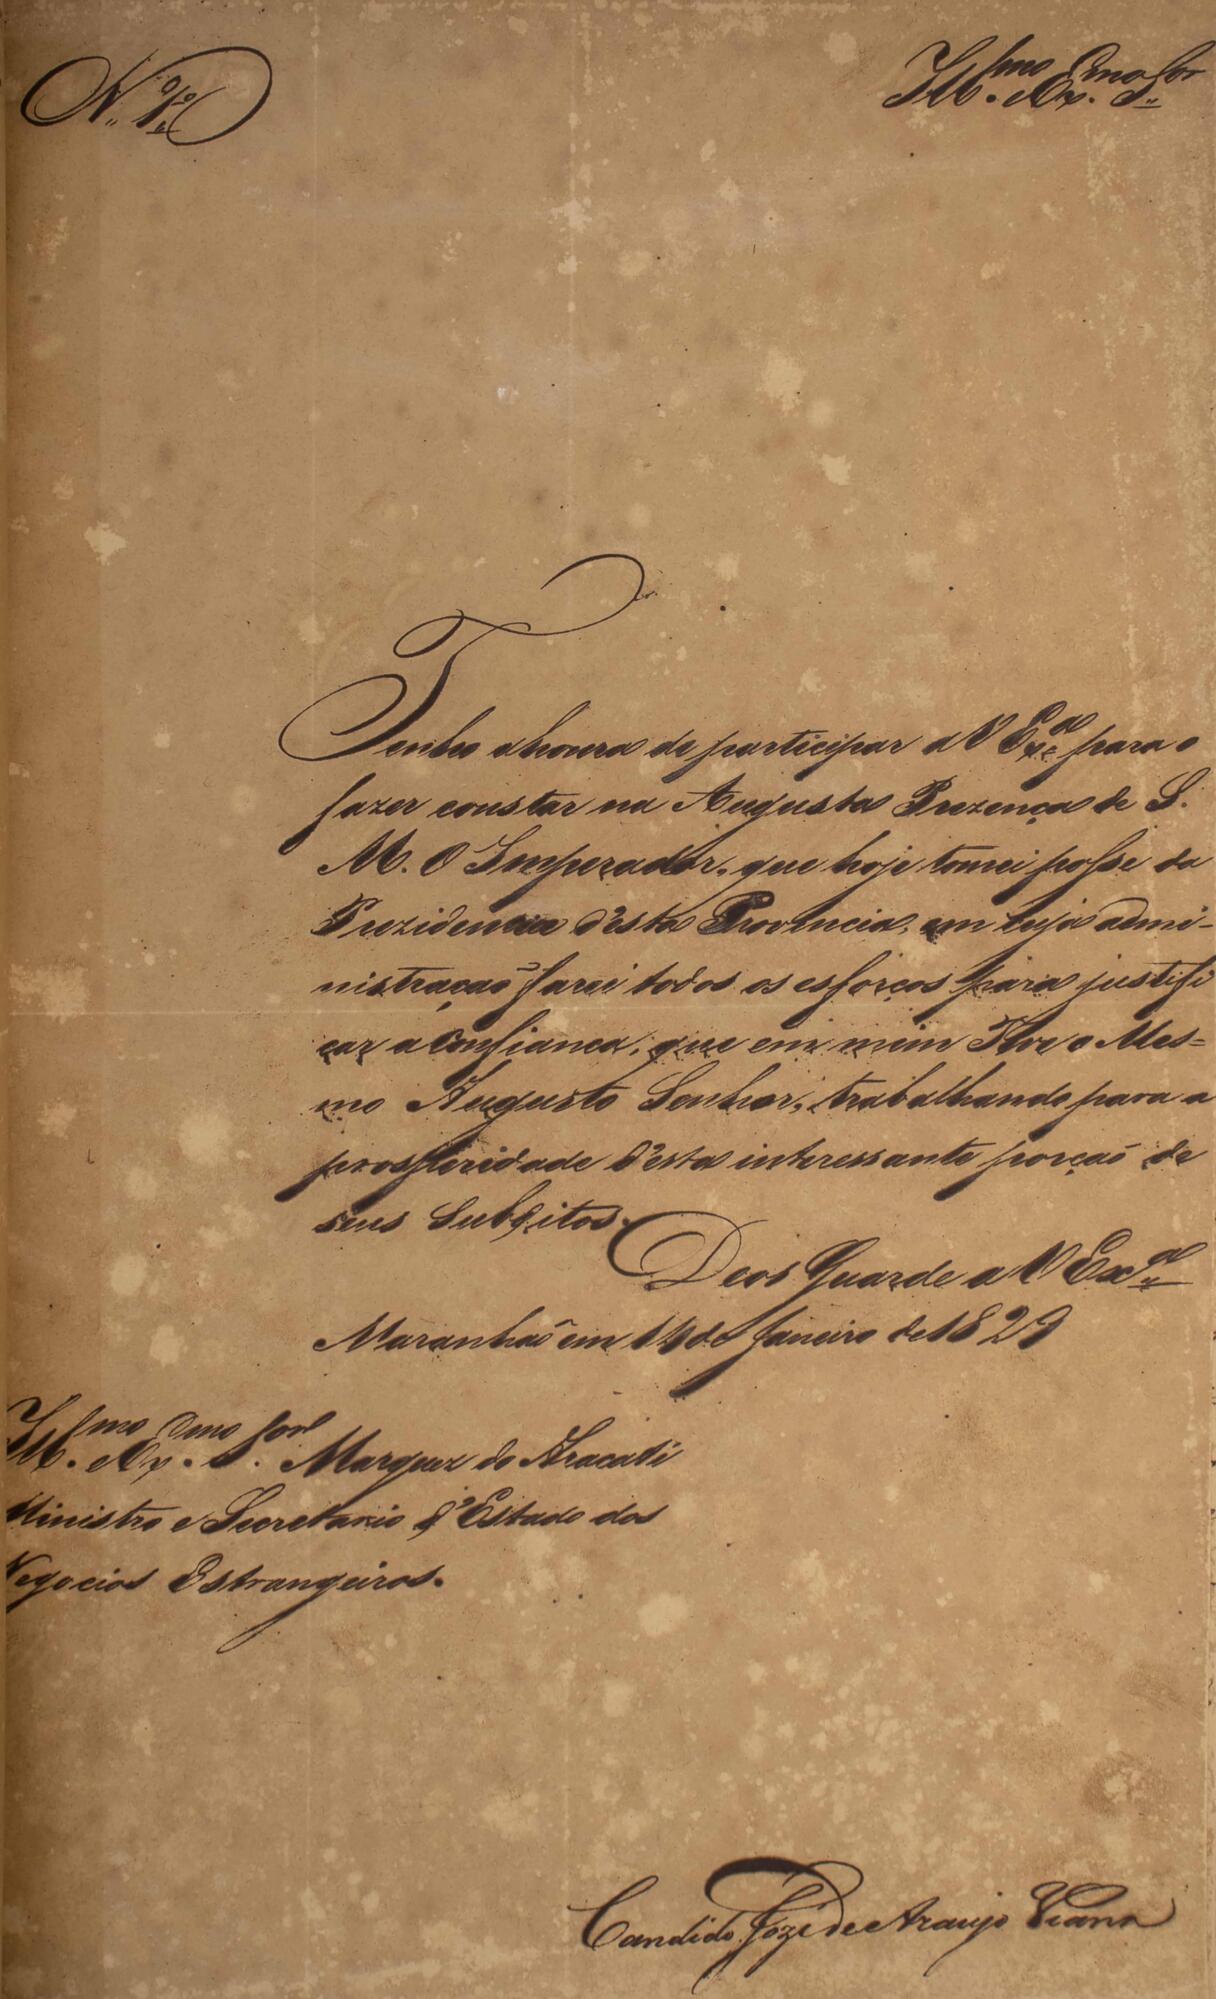 N.º 1.º
Ill.mo e Ex.mo S.or
Tenho a honra de participar a V Ex.ca para o
fazer constar na Augusta Prezença de S.
M. O Imperador, que hoje tomei posse da
Prezidencia d'esta Provincia, em cuja admi-
nistração farei todos os esforços para justifi
car a Confiança, que em mim Teve o Mes=
mo Augusto Senhor, trabalhando para a
prosperidade d'esta interessante porção de
seus Subditos.
Deos Guarde a V Ex.ca
Maranhão em 14 de Janeiro de 1829
Ill.mo e Ex.mo S.or Marquez do Aracati
Ministro e Secretario d'Estado dos
Negocios Estrangeiros.
Candido Jozé de Araujo Viana